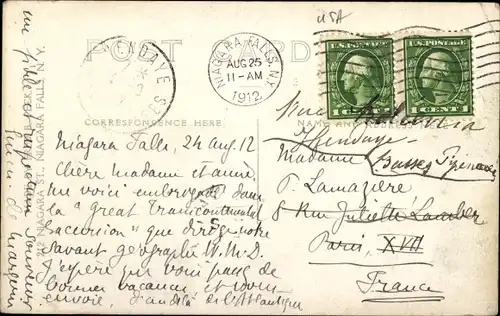 USA
POST CARD
HENDAYE
NIAGARA FALLS, N.Y.
AUG 25
11-AM
1912
U.S. POSTAGE
U.S. POSTAGE
1 CENT 1
1 CENT 1
CORRESPONDENCE HERE
NAME AND ADDRESS HERE
NIAGARA ST., NIAGARA FALLS, N.Y.
Niagara Falls, 24 aug. 12
Chère Madame et amie,
Me voici embarqué dans
la "great Transcontinental
Excursion" que dirige notre
savant géographe W.M.D.
J'espère que vous passez de
bonnes vacances, et vous
envoie, d'au delà de l'Atlantique
un fidèle et respectueux souvenir
Hendaye
Basses Pyrénées
Madame
P. Lamazère
8 Rue Juliette Lamber
Paris, XVII
France